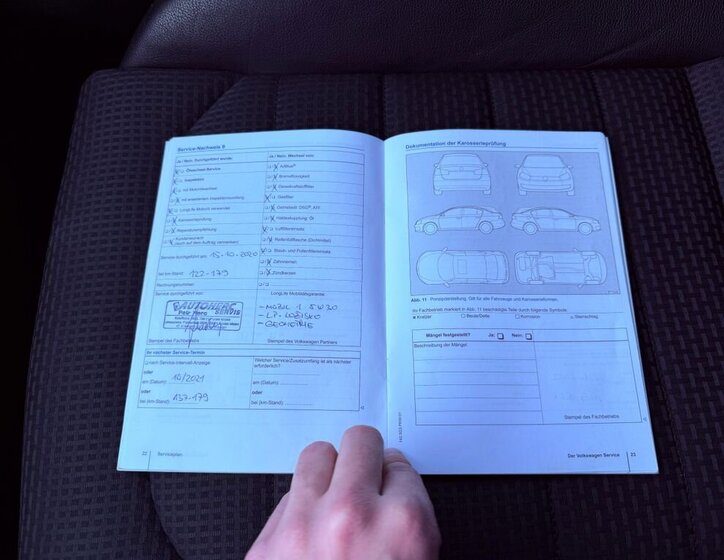 Service-Nachweis 8
Ja / Nein, durchgeführt wurde:
Ölwechsel-Service
Inspektion
mit Motorölwechsel
mit erweitertem Inspektionsumfang
LongLife Motoröl verwendet
Karosserieprüfung
Reparaturempfehlung
Kundenwunsch
(auch auf dem Auftrag vermerken)
Service durchgeführt am: 15-10-2020
bei km-Stand: 122-179
Rechnungsnummer:
Service durchgeführt von:
AUTOHERC
SERVIS
Petr Herc
Stempel des Fachbetriebs
Ja / Nein, Wechsel von:
AdBlue®
Bremsflüssigkeit
Dieselkraftstofffilter
Gasfilter
Getriebeöl DSG®, ATF
Haldexkupplung: Öl
Luftfiltereinsatz
Reifenfüllflasche (Dichtmittel)
Staub- und Pollenfiltereinsatz
Zahnriemen
Zündkerzen
LongLife Mobilitätsgarantie:
- MOBIL 1 5W30
- GEOMETRIE
Stempel des Volkswagen Partners
Ihr nächster Service-Termin
nach Service-Intervall-Anzeige
oder
am (Datum): 10/2021
oder
bei (km-Stand): 137-179
Welcher Service/Zusatzumfang ist als nächster
erforderlich?
am (Datum):
oder
bei (km-Stand):
22 Serviceplan
Dokumentation der Karosserieprüfung
Abb. 11 Prinzipdarstellung. Gilt für alle Fahrzeuge und Karosserieformen.
Ihr Fachbetrieb markiert in Abb. 11 beschädigte Teile durch folgende Symbole:
Kratzer Beule/Delle Korrosion Steinschlag
Mängel festgestellt? Ja: Nein:
Beschreibung der Mängel:
Stempel des Fachbetriebs
Der Volkswagen Service 23